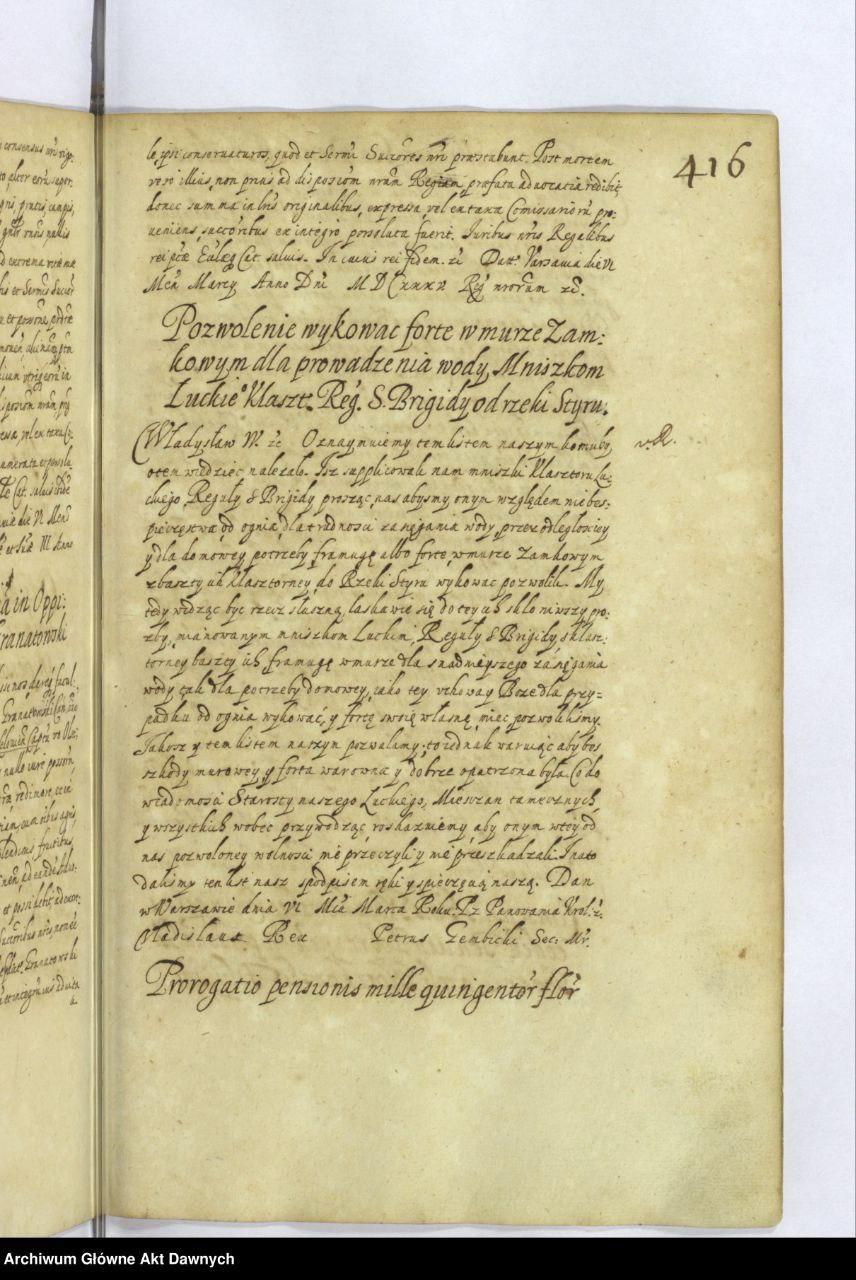 416
le, ipsi conservaturos, quod et Sermi Succores nri præstabunt. Post mortem
vero illius, non prius ad disposiom nram Regiam, præfata advocatia redibit,
donec summa in lris originalibus, expressa vel ex taxa Comissariorũ pro:
ueniens, succoribus ex integro persoluta fuerit. Iuribus nris Regalibus
reipcæ Eclæq Cat. saluis. In cuius rei fidem. zc Datt. Varsaviæ die VI
Men Marcy Anno Dni M D C xxxv Reg nrorum zc.
Pozwolenie wykowac forte w murze Zam:
kowym dla prowadzenia wody, Mniszkom
Luckie° Klaszt. Reg. S. Brigidy od rzeki Styru.
Władysław IV. zc Oznaymuiemy tem listem naszym komu by
o tem wiedziec nalezalo. Isz supplicowali nam mniszki Klasztoru Lu:
ckiego, Reguły S Brigidy prosząc, nas abysmy onym względem niebes:
pieczęstwa od ognia, dla trudnosci zasięgania wody, przez odległosc iey
y dla domowey potrzeby, framugę albo fortę, w murze Zamkowym
z baszty ich klasztorney, do Rzeki Styru wykowac pozwolili. My
tedy widząc byc rzecz słuszną, laskawie się do tey ich skloniwszy pro:
zby, mianowanym mniszkom Luckim, Reguły S Brigidy, z klasz:
torney baszty ich, framugę w murze dla snadnieyszego zasięgania
wody, tak dla potrzeby domowey, iako tey vchoway Boze dla przy=
padku od ognia wykować, y fortę swoię własnę, miec pozwolilismy.
Jakosz y tem listem naszym pozwalamy. to iednak waruiąc aby bes
szkody murowey, y forta warowna y dobrze opatrzona była. Co do
wiadomosci Starosty naszego Luckiego, Mieszczan tamecznych,
y wszystkich wobec przywodząc, roskazuiemy, aby onym w tey od
nas pozwoloney wolnosci nie przeczyli y nie przeszkadzali. I na to
dalismy ten list nasz s podpisem ręki y s pieczęcią naszą. Dan
w Warszawie dnia VI Mca Marca Roku. Pz Panowania Krol. z.
Vladislaus Rex Petrus Gembicki Sec: Mr.
v. R.
Prorogatio pensionis mille quingentor flor
Archiwum Główne Akt Dawnych